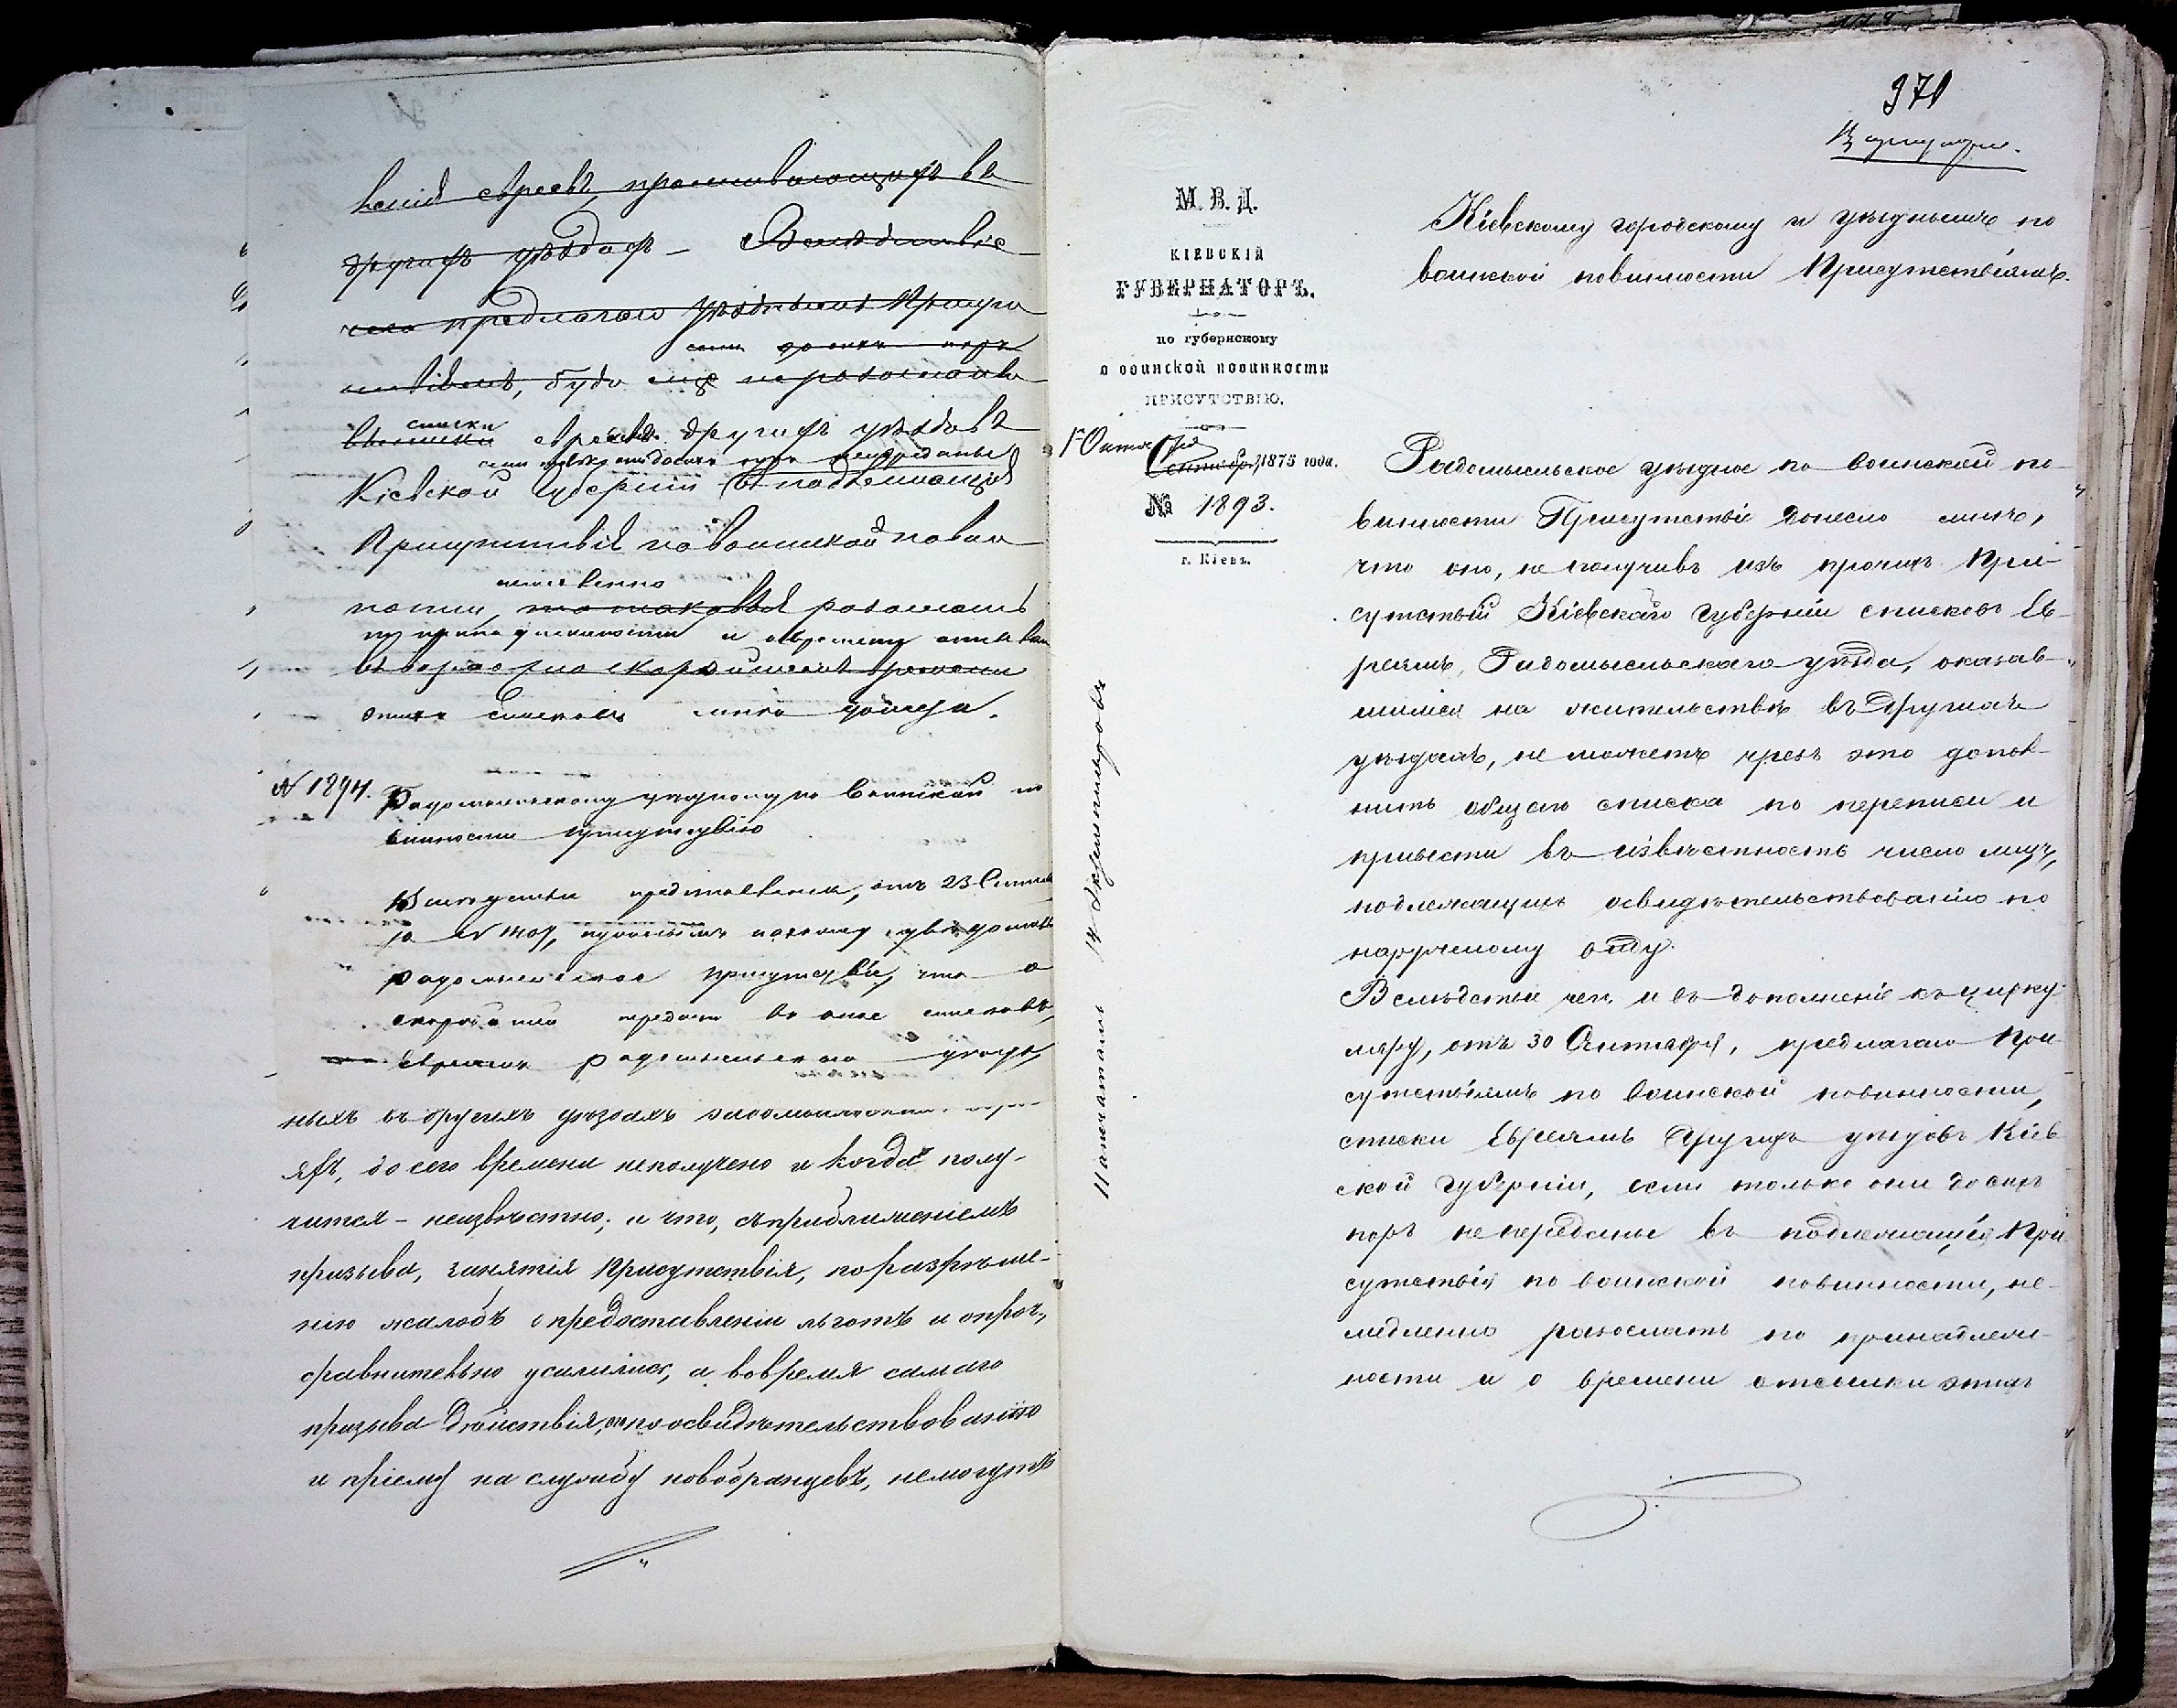 евреевъ, проживающихъ въ
другихъ уѣздахъ — Вслѣдствіе
чего предлагаю Уѣзднымъ Присут
ствіямъ, буде еще не разослали
списки
евреевъ другихъ уѣздовъ
Кіевской Губерніи въ подлежащія
Присутствія по воинской повин
немедленно
ности, то таковыя разослать
по принадлежности и о времени отсылки
въ возможно скорѣйшемъ времени
списковъ мнѣ донести.
№ 1894. Радомысльскому уѣздному по воинской по
винности присутствію
представленія, отъ 23 Сентяб
ря №
радомысльское присутствіе, что о
скорѣйшей передачѣ въ оное списковъ,
Евреямъ радомысльскаго уѣзда,
ныхъ въ другихъ уѣздахъ
яхъ, до сего времени не получено и когда полу-
чится – неизвѣстно; и что, съ приближеніемъ
призыва, занятія Присутствія, по разрѣше-
нію жалобъ о предоставленіи льготъ и проч.,
сравнительно усилились, а во время самаго
призыва дѣйствія, по освидѣтельствованію
и пріему на службу новобранцевъ, не могутъ
371
М. В. Д.
КІЕВСКІЙ
ГУБЕРНАТОРЪ.
по губернскому
о воинской повинности
ПРИСУТСТВІЮ.
1 Октября
Сентября 1875 года.
№ 1893.
г. Кіевъ.
Напечатать 14 экземпляровъ
Кіевскому городскому и уѣзднымъ по
воинской повинности Присутствіямъ.
Радомысльское уѣздное по воинской по-
винности Присутствіе донесло мнѣ,
что оно, не получивъ изъ прочихъ При-
сутствій Кіевской Губерніи списковъ Ев-
реямъ, Радомысльскаго уѣзда, оказав-
шимся на жительствѣ въ другихъ
уѣздахъ, не можетъ чрезъ это допол-
нить общаго списка по переписи и
привести въ извѣстность число лицъ,
подлежащихъ освидѣтельствованію по
наружному виду.
Вслѣдствіе чего и въ дополненіе къ цирку-
ляру, отъ 30 Сентября, предлагаю При
сутствіямъ по воинской повинности,
списки Евреямъ другихъ уѣздовъ Кіев
ской Губерніи, если только они до сихъ
поръ не переданы въ подлежащія При
сутствія по воинской повинности, не-
медленно разослать по принадлеж-
ности и о времени отсылки этихъ